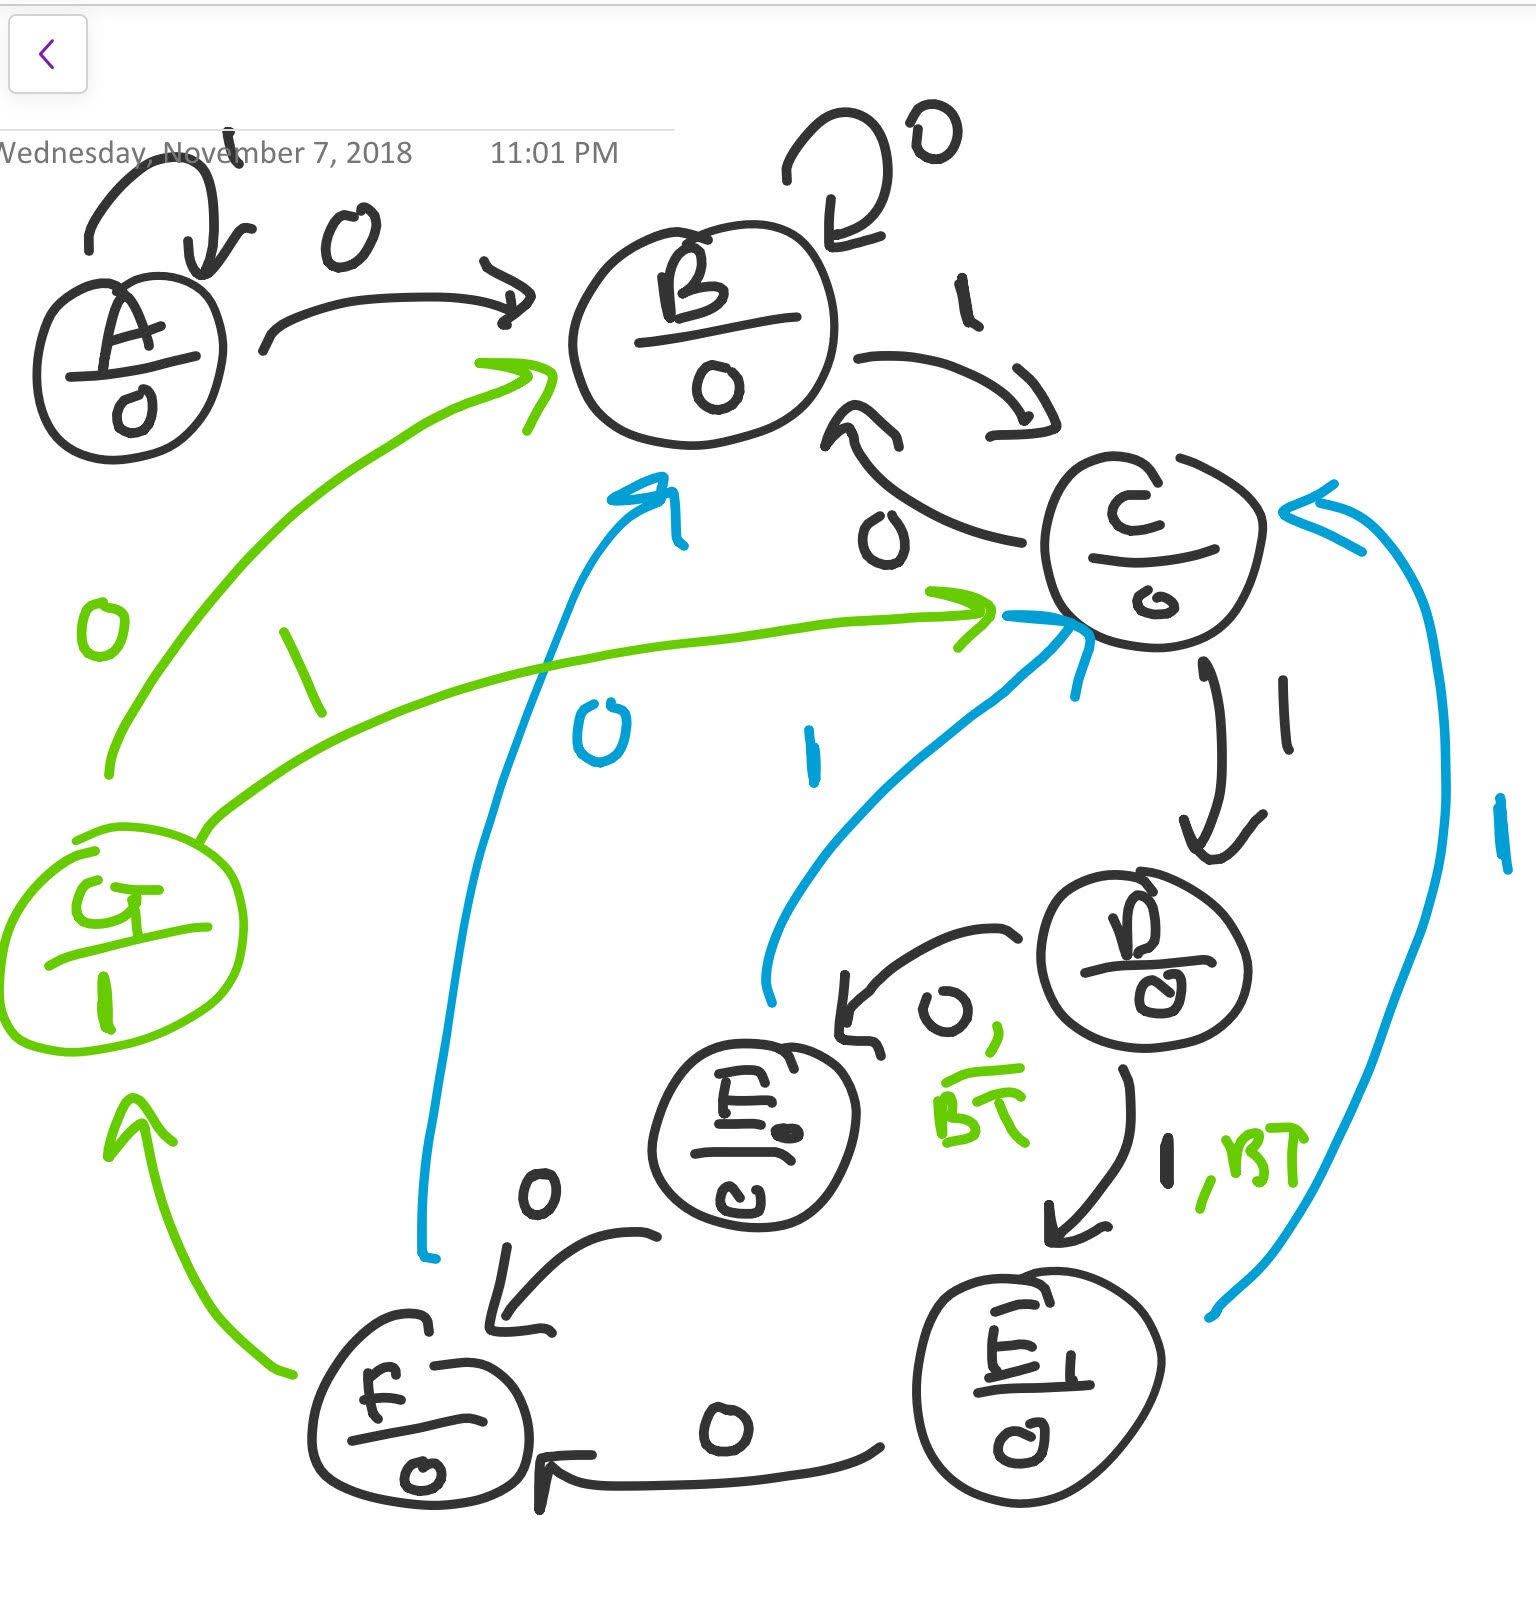 Wednesday, November 7, 2018 11:01 PM
1
0
0
A
0
B
0
1
0
C
0
0
1
0
1
1
1
G
1
D
0
0, BT
E0
0
1, BT
0
E1
0
F
0
0